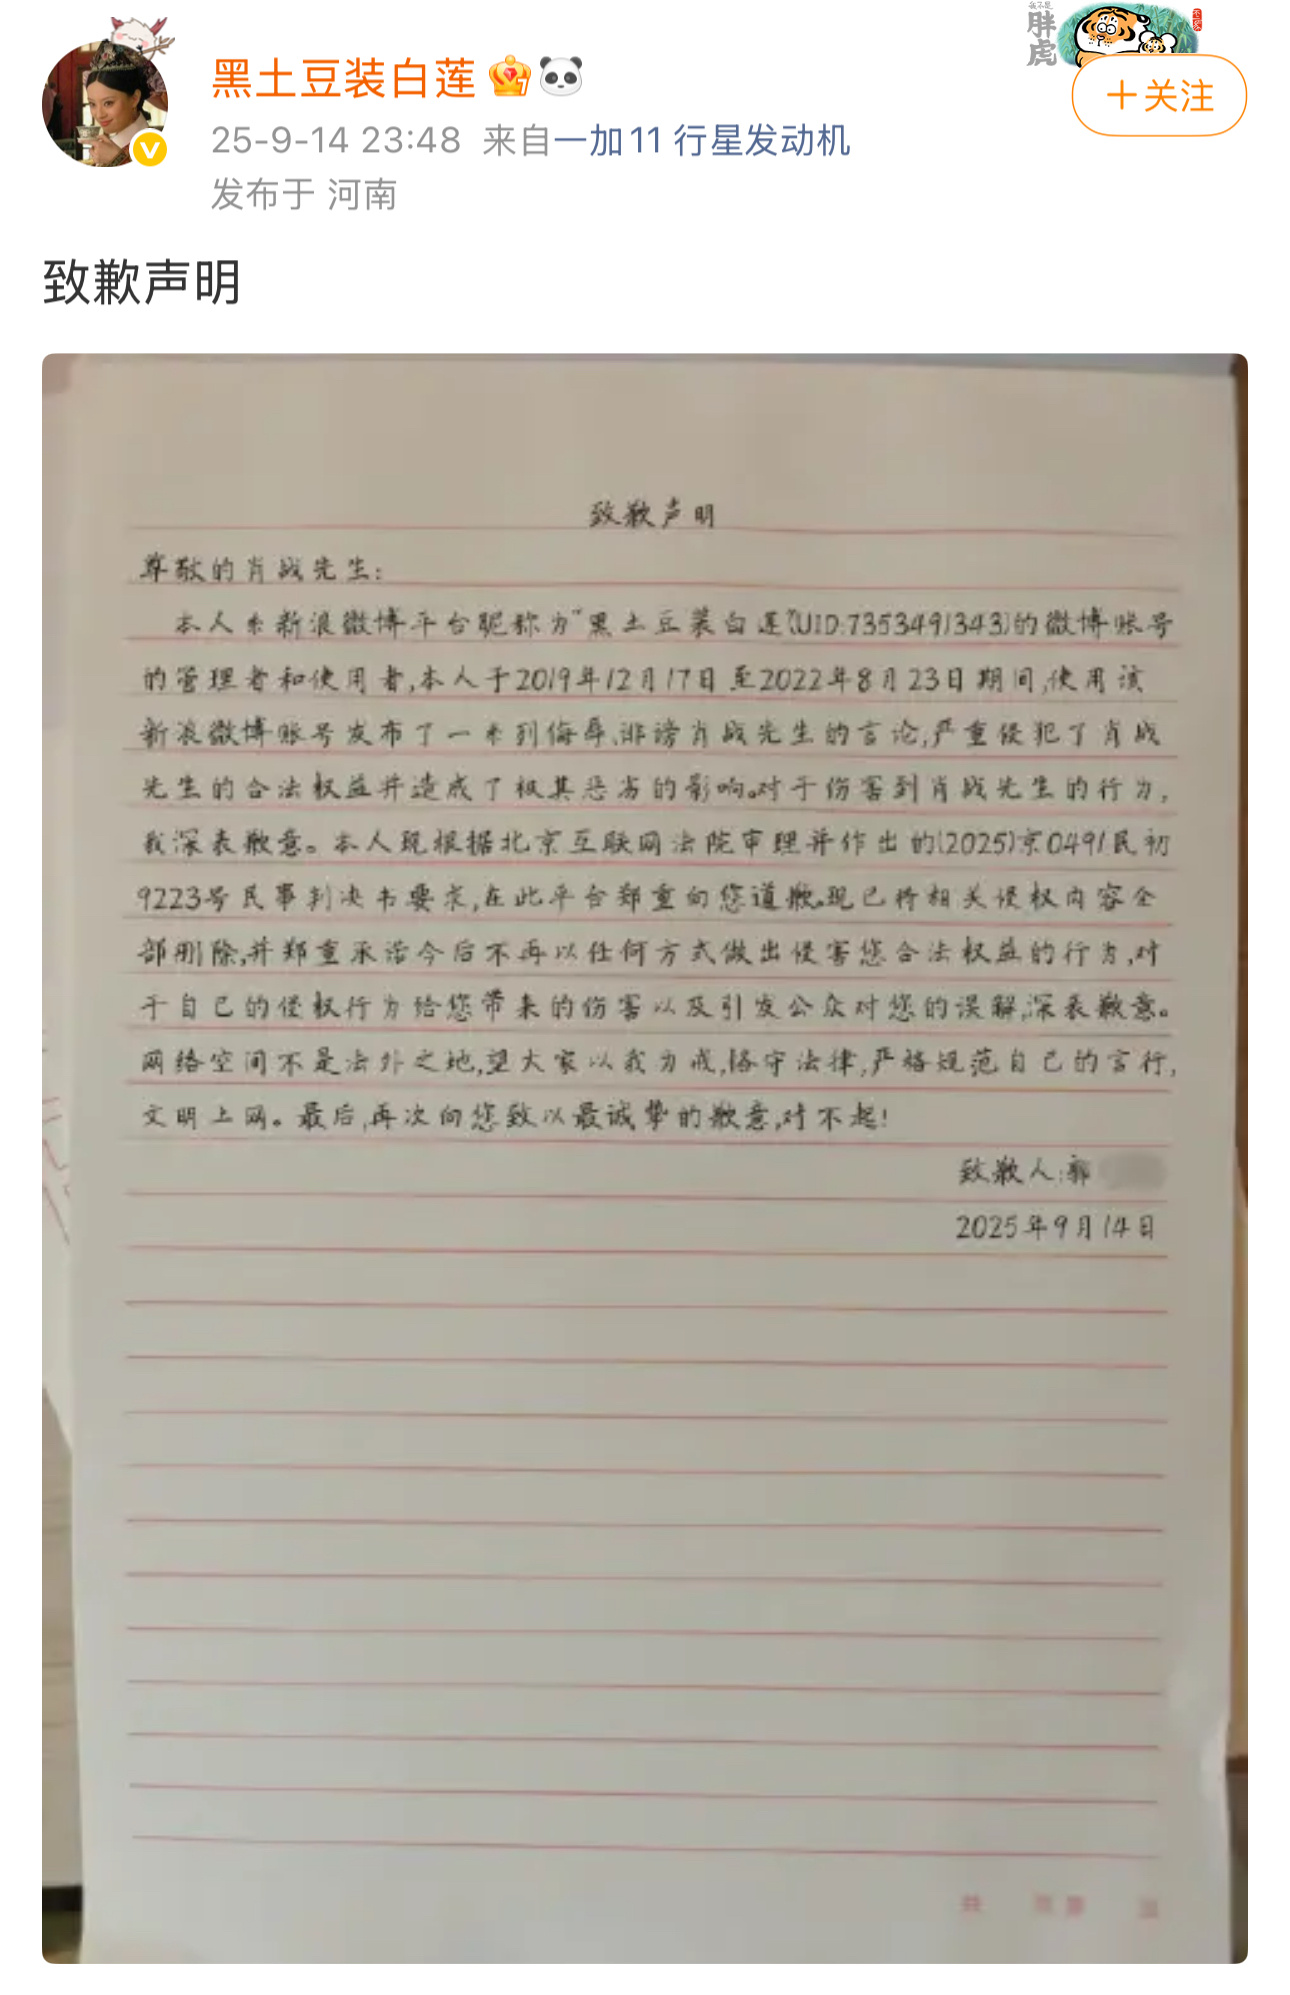 我不是
胖虎
黑土豆装白莲
+关注
25-9-14 23:48 来自一加11 行星发动机
发布于 河南
致歉声明
致歉声明
尊敬的肖战先生:
本人系新浪微博平台昵称为"黑土豆装白莲"(UID:7353491343)的微博账号
的管理者和使用者,本人于2019年12月17日至2022年8月23日期间,使用该
新浪微博账号发布了一系列侮辱、诽谤肖战先生的言论,严重侵犯了肖战
先生的合法权益并造成了极其恶劣的影响。对于伤害到肖战先生的行为,
我深表歉意。本人现根据北京互联网法院审理并作出的(2025)京0491民初
9223号民事判决书要求,在此平台郑重向您道歉。现已将相关侵权内容全
部删除,并郑重承诺今后不再以任何方式做出侵害您合法权益的行为,对
于自己的侵权行为给您带来的伤害以及引发公众对您的误解,深表歉意。
网络空间不是法外之地,望大家以我为戒,恪守法律,严格规范自己的言行,
文明上网。最后,再次向您致以最诚挚的歉意,对不起!
致歉人:郭
2025年9月14日